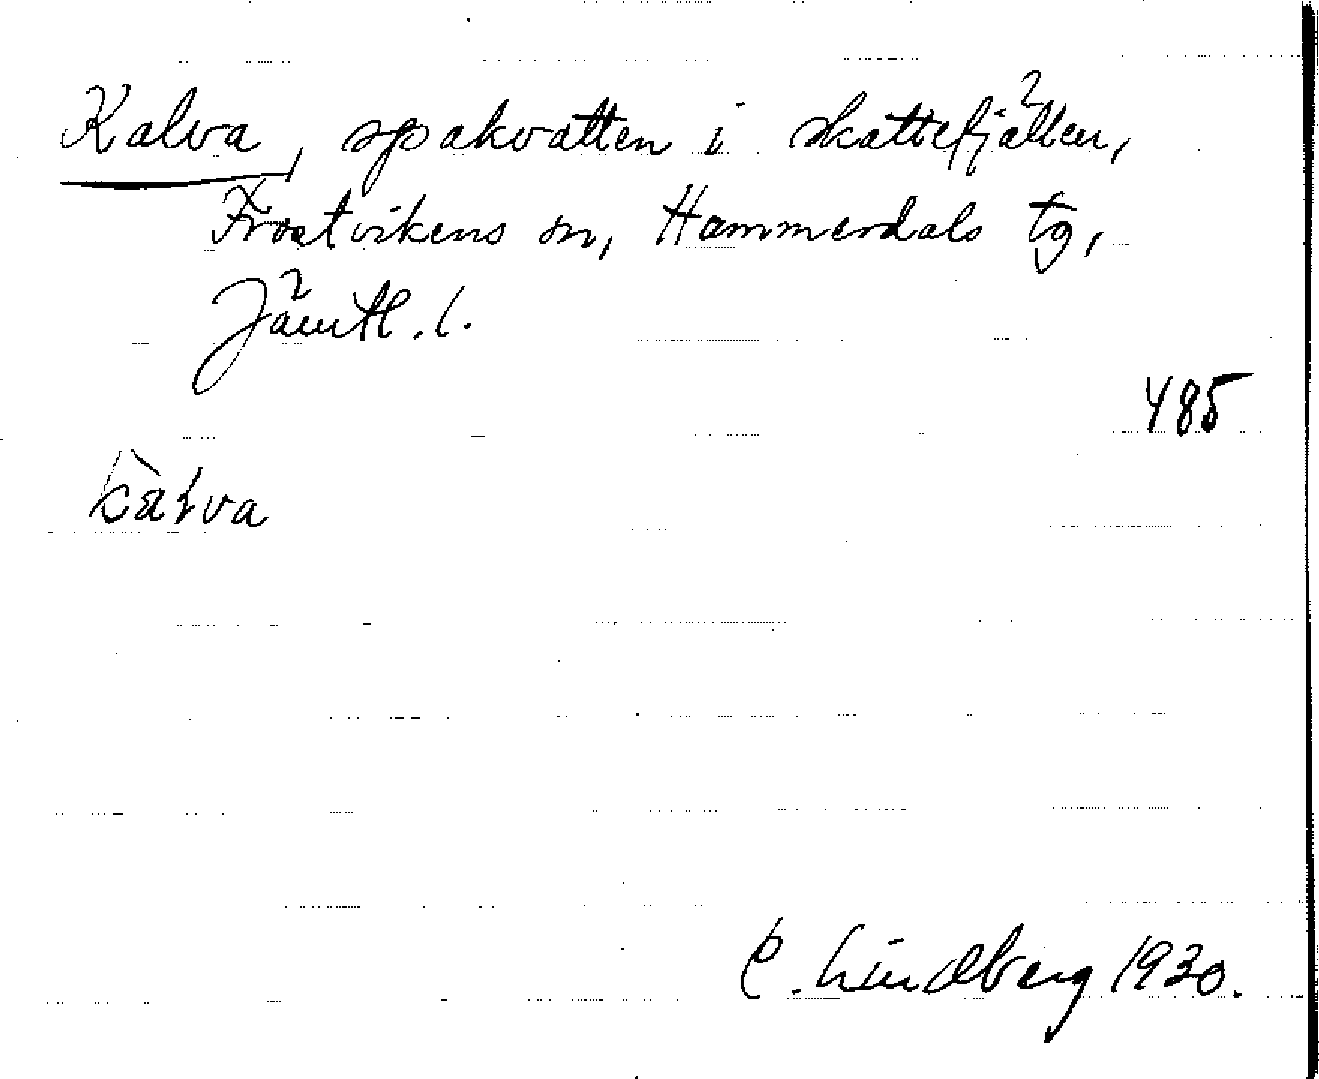 Kalva, spakvatten i skattefjällen,
Frostvikens sn, Hammerdals tg,
Jämtl. l.
485
C. Lindberg 1930.